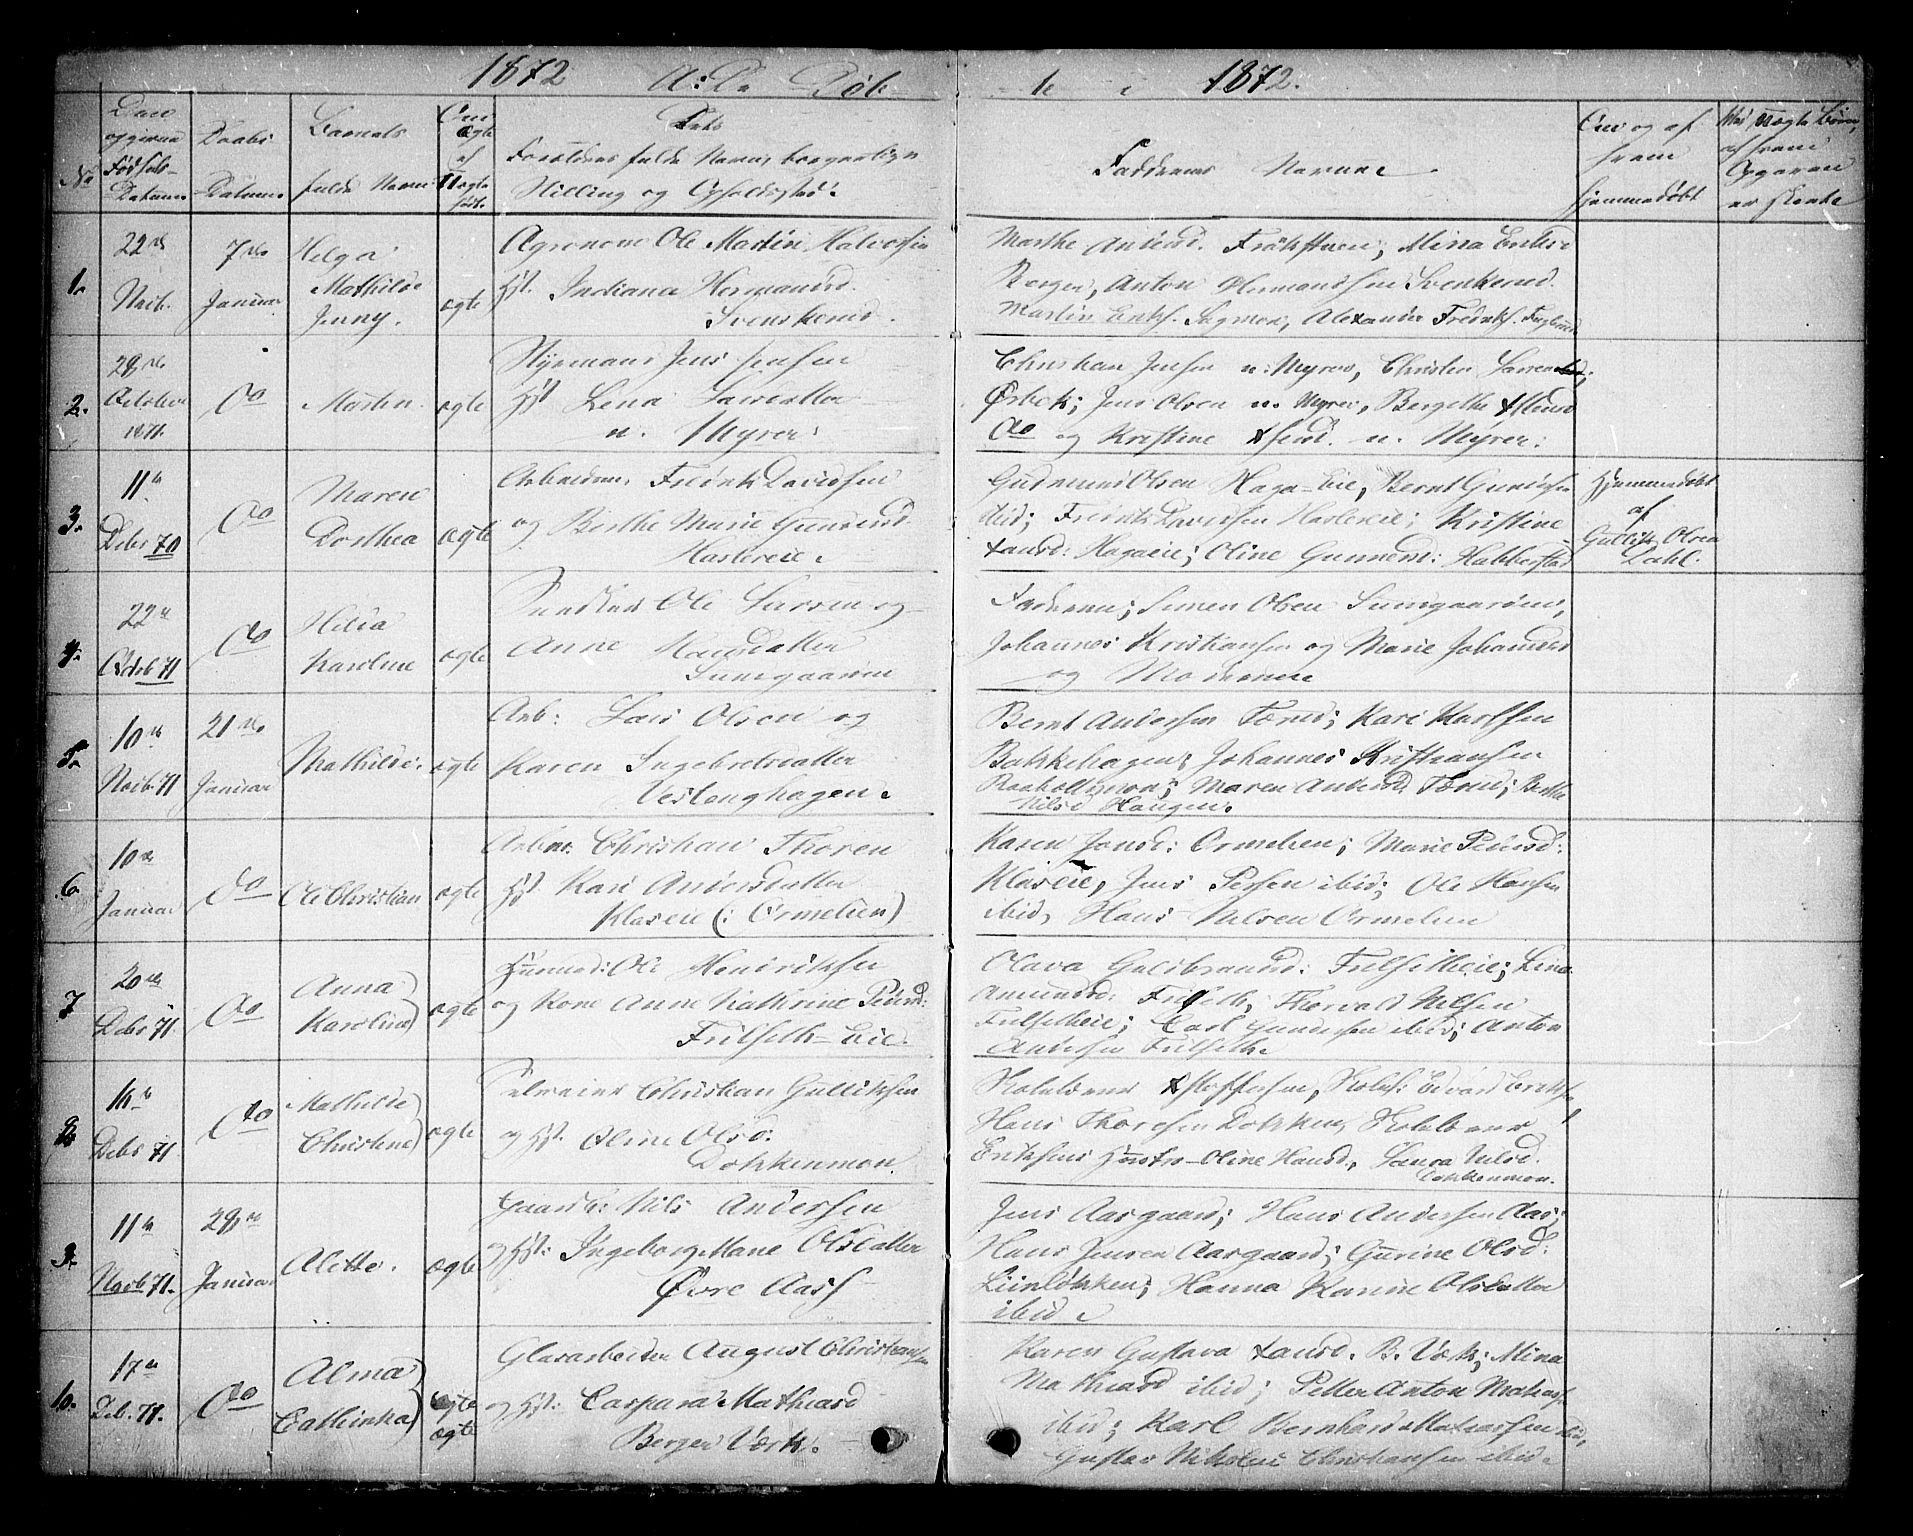 1872 A: Da Døb
- te i 1872.
No
Den opgivne Fødsels-Datum
Daabs Datum
Barnets fulde Navn
Om Ægte el Uægte født.
Dets Forældres fulde Navne, borgerlige
Stilling og Opholdssted.
Faddernes Navne
Om og af hvem hjemmedøbt
Ved Uægte Børn, af hvem Opgaven er skeete
1. 22de Novb. 7de Januar Helga Mathilde Jenny. ægte
Agronom Ole Martin Halvorsen
Hst. Indiana Hermansd.
Svenskerud.
Marthe Andersd. Frøkstuen; Mina Eriksd
Berger, Anton Hermandsen Svenkerud
Martin Eriks. Sagmoen, Alexander Fredriks. Fuglerud
2. 29de October 1871. do Martin. ægte
Styrmand Jens Jensen
Hst Lena Larsdatter
n. Myrer.
Christian Jensen n. Myrer, Christen Larsen
Ørbek; Jens Olsen n. Myrer, Bergithe
do og Kristine n. Myrer.
3. 11te Debr 70 do Maren Dorthea ægte
Arbeidsm. Fredrik Davidsen
og Berthe Marie Gundersd.
Haslereie.
Gudmund Olsen Haga-Eie, Bernt Gundersen
ibid; Fredrik Davidsen Haslereie; Kristine
Larsd: Hagaeie; Oline Gunnersd: Habberstad
Hjemmedøbt af Gullik Olsen Dahl.
4. 22de Octob 71 do Hilda Karoline ægte
Ole Larsen og
Anne Hansdatter
Sunegaarden
Faderen; Simen Olsen Sunegaarden,
Johannes Kristiansen og Marie Johannesd
og Moderen
5. 10de Novb. 71 21de Januar Mathilde. ægte
Arb: Lars Olsen og
Karen Ingebretsdatter
Vestenghagen.
Bernt Andersen Tærud; Kari Karlsen
Bakkehagen; Johannes Kristiansen
Raaholtmoen; Maren Andersd Tærud; Berthe
Nilsd Haugen.
6 10de Januar do Ole Christian ægte
Arbm. Christian Thoresen
Hst. Kari Andersdatter
Klaseie (: Ormelien)
Karen Jonsd: Ormelien; Marie Pedersd:
Klaseie, Jens Persen ibid; Ole Hansen
ibid, Hans Nilsen Ormelien
7 20de Debr 71 do Anna Karoline ægte
Huusmd: Ole Henriksen
og Kone Anne Kathrine Pedersd:
Frilseth-Eie.
Olava Guldbrandsd: Frilsetheie; Lina
Amundsd: Frilseth, Thorvald Nilsen
Frilsetheie; Carl Gundersen ibid; Anton
Andersen Frilseth.
8 16de Debr 71 do Mathilde Christine ægte
Selveier Christian Gulliksen
og Hst. Oline Olsd:
Dokkenmoen.
Hans Thoresen Dokken,
Eriksens Hustro - Oline Hansd., Laura Nilsd.
Dokkenmoen.
9. 11te Novb 71. 29de Januar Alette. ægte
Gaardb: Nils Andersen
og Hst: Ingeborg Marie Olsdatter
Øvre Aas
Jens Aasgaard; Hans Andersen Aas;
Hans Jensen Aasgaard; Gurine Olsd:
Liinløkken; Hanna Karine Olsdatter
ibid.
10. 17de Deb. 71. do Alma Cathinka ægte ægte
Glasarbeider August Christiansen
og Hst: Caspara Mathiasd
Berger Værk.
Karen Gustava Larsd. B. Værk; Mina
Mathiasd ibid; Petter Anton Mathias.
ibid; Karl Bernhard Mathiassen ibid,
Gustav Nikolai Christiansen ibid.